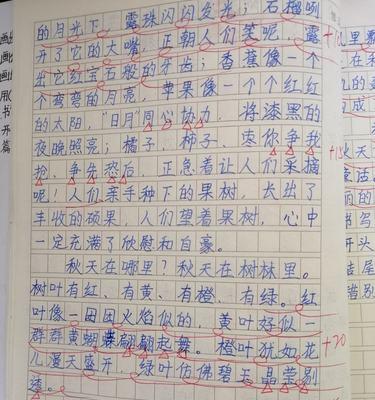 的月光下，露珠闪闪发光；石榴咧
开了它的大嘴，正朝人们笑呢，露
出它红宝石般的牙齿；香蕉像一个
个弯弯的月亮，苹果像一个个红红
的太阳，"日月"同心协力，将漆黑的
夜晚照亮；橘子、柿子、枣你争我
抢、争先恐后，正急着让人们采摘
呢！人们亲手种下的果树，长出了
丰收的硕果，人们望着果树，心中
一定充满了欣慰和自豪。
秋天在哪里？秋天在树林里。
树叶有红、有黄、有橙、有绿。红
叶像一团团火焰似的，黄叶好似一
群群黄蝴蝶翩翩起舞。橙叶犹如花
儿漫天盛开，绿叶仿佛碧玉晶莹剔
透。
+20
开
篇